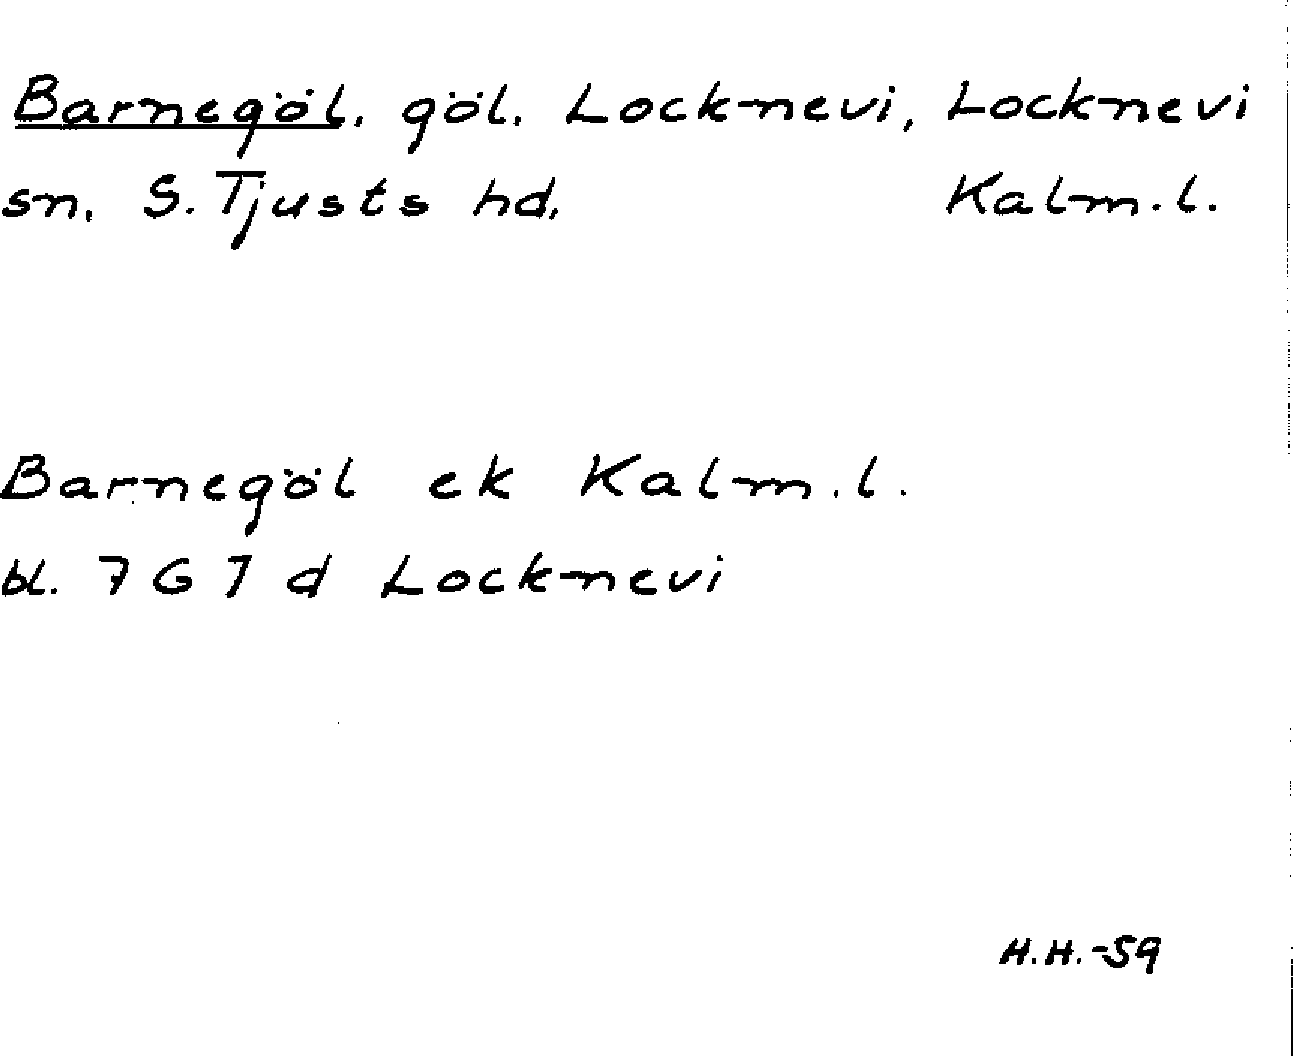 Barnegöl, göl, Locknevi, Locknevi
sn, S. Tjusts hd, Kalm. l.
Barnegöl ek Kalm. l.
bl. 7 G 7 d Locknevi
H.H.-59